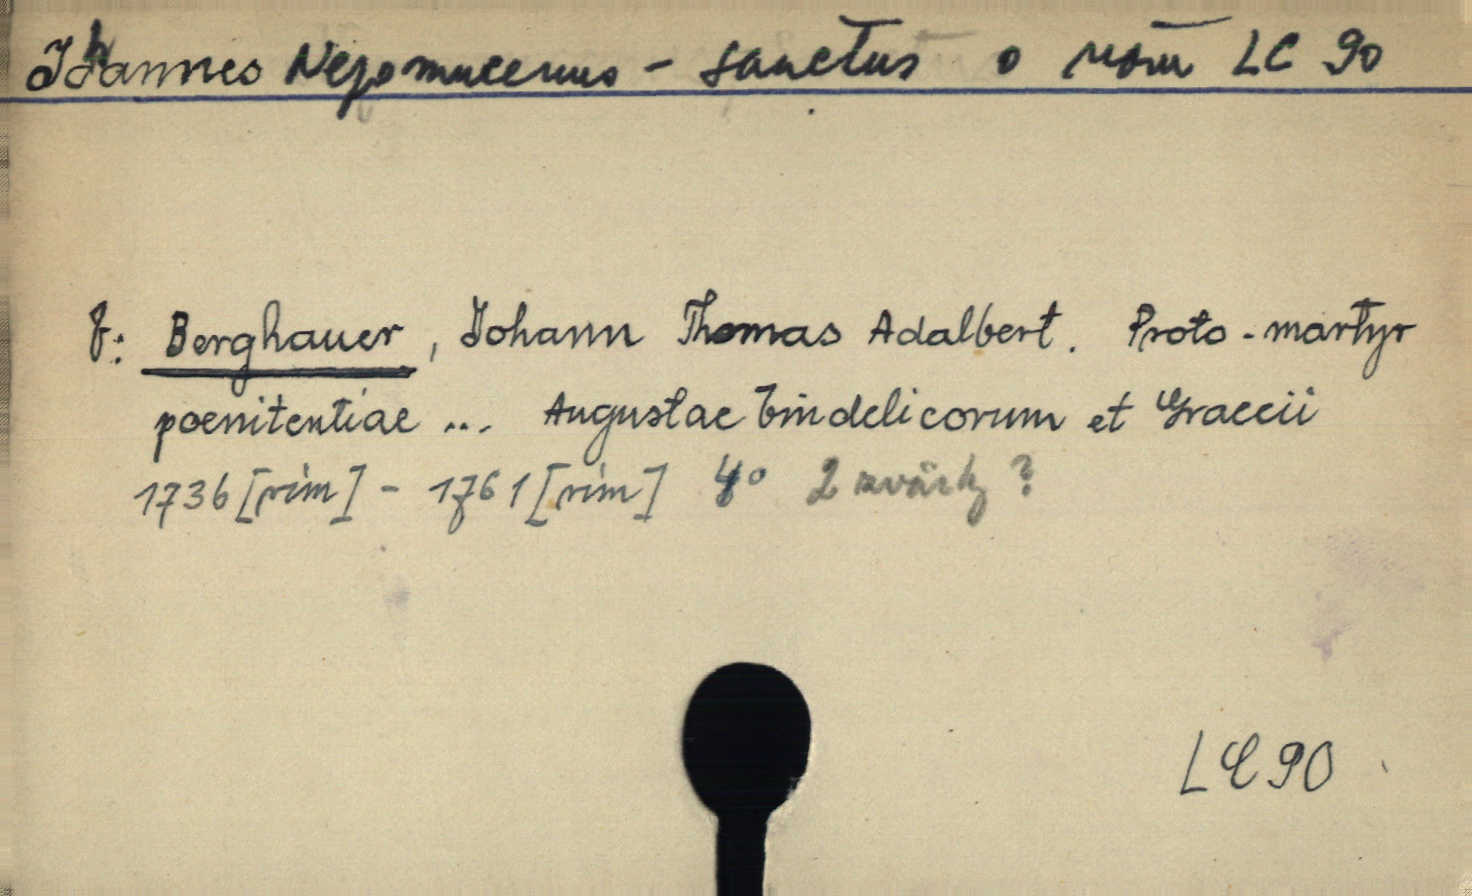 Johannes Nepomucenus - sanctus o ňom LC 90
f: Berghauer, Johann Thomas Adalbert. Proto-martyr
poenitentiae ... Augustae Vindelicorum et Graecii
1736 [rím] - 1761 [rím] 4° 2 zväzky ?
LC 90